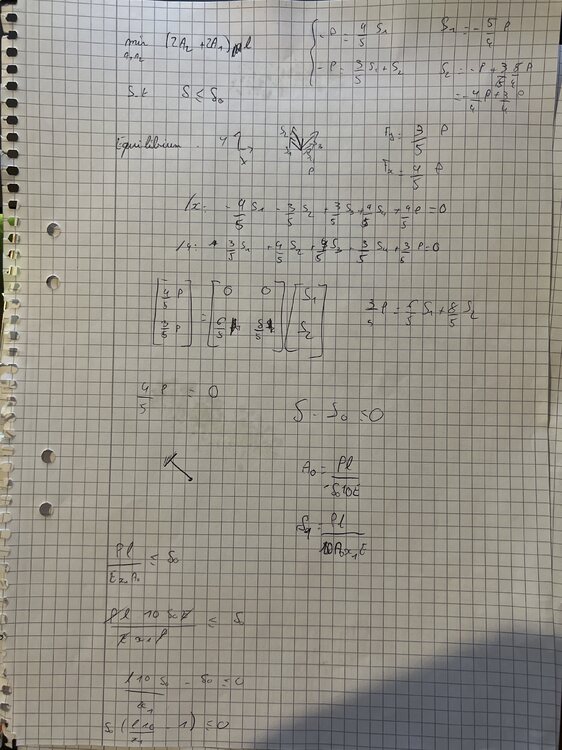 min (2A₂ + 2A₁) ρl
A₁A₂
S.t δ ≤ δ₀
-P = 4/5 S₁
-P = 3/5 S₁ + S₂
S₁ = -5/4 P
S₂ = -P + 3/5 5/4 P
= -4/4 P + 3/4 P
Equilibrium
y
x
P
F_y = 3/5 P
F_x = 4/5 P
/x: -4/5 S₁ - 3/5 S₂ + 3/5 S₃ + 4/5 S₄ + 4/5 P = 0
/y: 3/5 S₁ + 4/5 S₂ + 4/5 S₃ + 3/5 S₄ + 3/5 P = 0
[4/5 P; 3/5 P] = [0 0; 6/5 8/5] [S₁; S₂]
3/5 P = 6/5 S₁ + 8/5 S₂
4/5 P = 0
δ - δ₀ ≤ 0
A₀ = Pl / δ₀10E
= Pl / 10A₀x₁E
Pl / Ex₁A₀ ≤ δ₀
Pl 10 δ₀E / E x₁P ≤ δ
l10 δ₀ / x₁ - δ₀ ≤ 0
δ₀ (l10 / x₁ - 1) ≤ 0